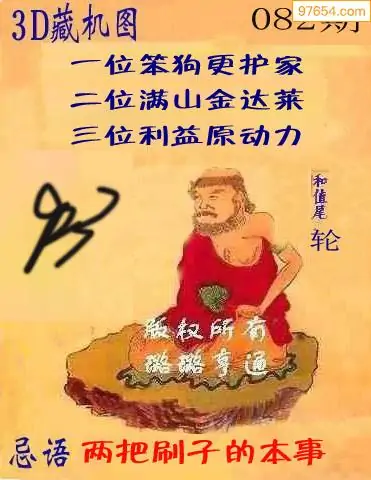 97654.com
3D藏机图
082期
一位笨狗更护家
二位满山金达莱
三位利益原动力
和值尾
轮
版权所有
璐璐亨通
忌语 两把刷子的本事